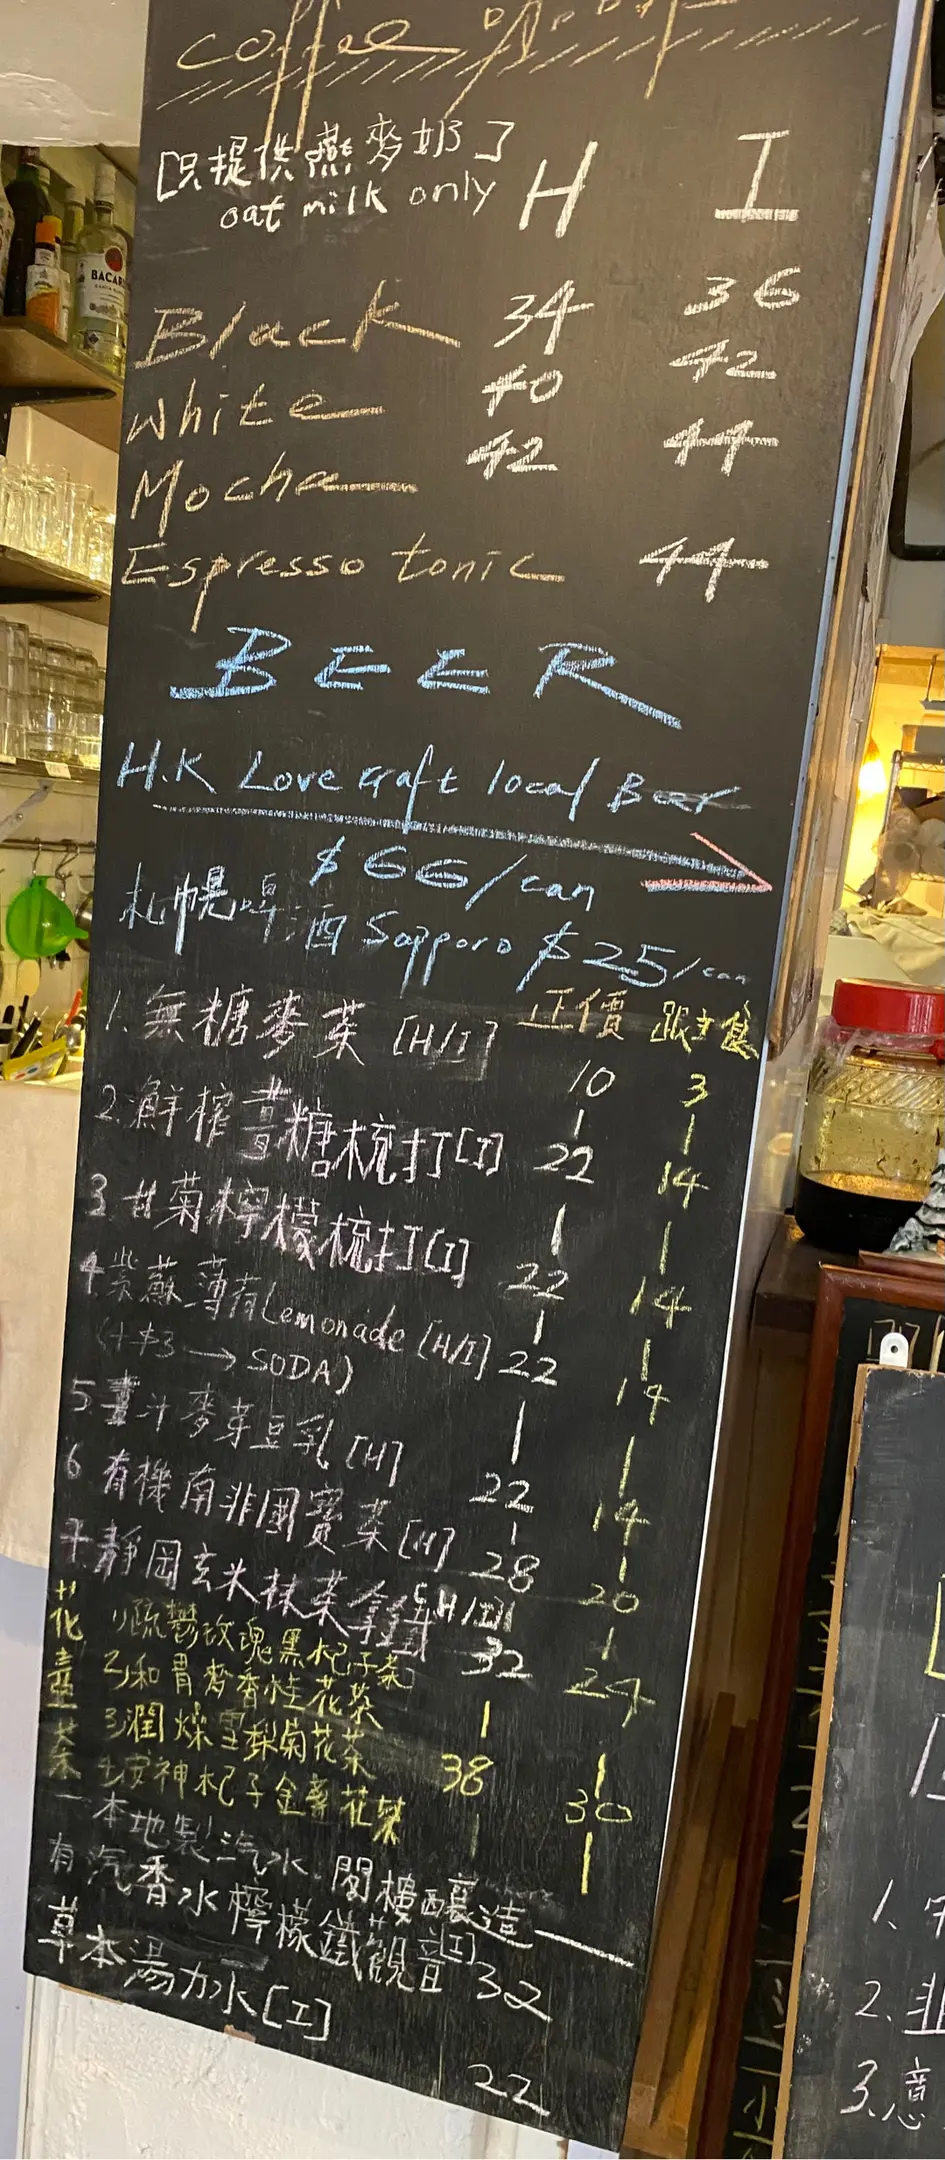 coffee
[只提供燕麥奶]
oat milk only
H I
Black 34 36
White 40 42
Mocha 42 44
Espresso tonic 44
BEER
H.K Lovecraft local Beer
$66/can
札幌啤酒 Sapporo $25/can
正價 跟主食
1. 無糖麥茶 [H/I] 10 3
2. 鮮榨黃糖梳打 [I] 22 14
3. 甘菊檸檬梳打 [I] 22 14
4 紫蘇薄荷 Lemonade [H/I] 22 14
(+$3 → SODA)
5 薑汁麥芽豆乳 [H] 22 14
6 有機南非國寶茶 [H] 28 20
7. 靜岡玄米抹茶拿鐵 [H/I] 32 24
花草茶
1) 疏鬱玫瑰黑杞子茶
2) 和胃麥香桂花茶
3) 潤燥雪梨菊花茶 38 30
4) 安神杞子金萱花茶
一本地製汽水·閣樓釀造一
有汽香水檸檬鐵觀音 [I] 32
草本湯力水 [I] 22
BACAR
1.
2. 非
3. 意